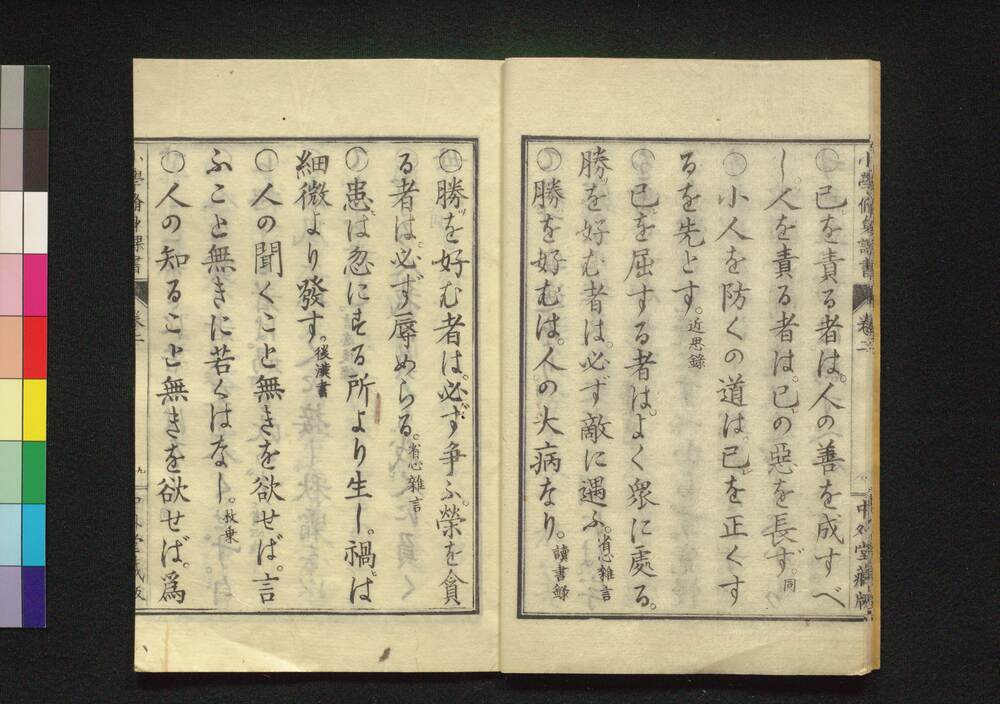 小學修身課書 卷二 中外堂藏版
○己を責る者は。人の善を成すべ
し。人を責る者は。己の惡を長ず。同
○小人を防くの道は。己を正くす
るを先とす。近思錄
○己を屈する者は。よく衆に處る。
勝を好む者は。必ず敵に遇ふ。省心雜言
○勝を好むは。人の大病なり。讀書錄
○勝を好む者は。必ず爭ふ。榮を貪
る者は。必ず辱めらる。省心雜言
○患は忽にする所より生し。禍は
細微より發す。後漢書
○人の聞くこと無きを欲せば。言
ふこと無きに若くはなし。枚乗
○人の知ること無きを欲せば。爲
小學脩身課書 卷二 九